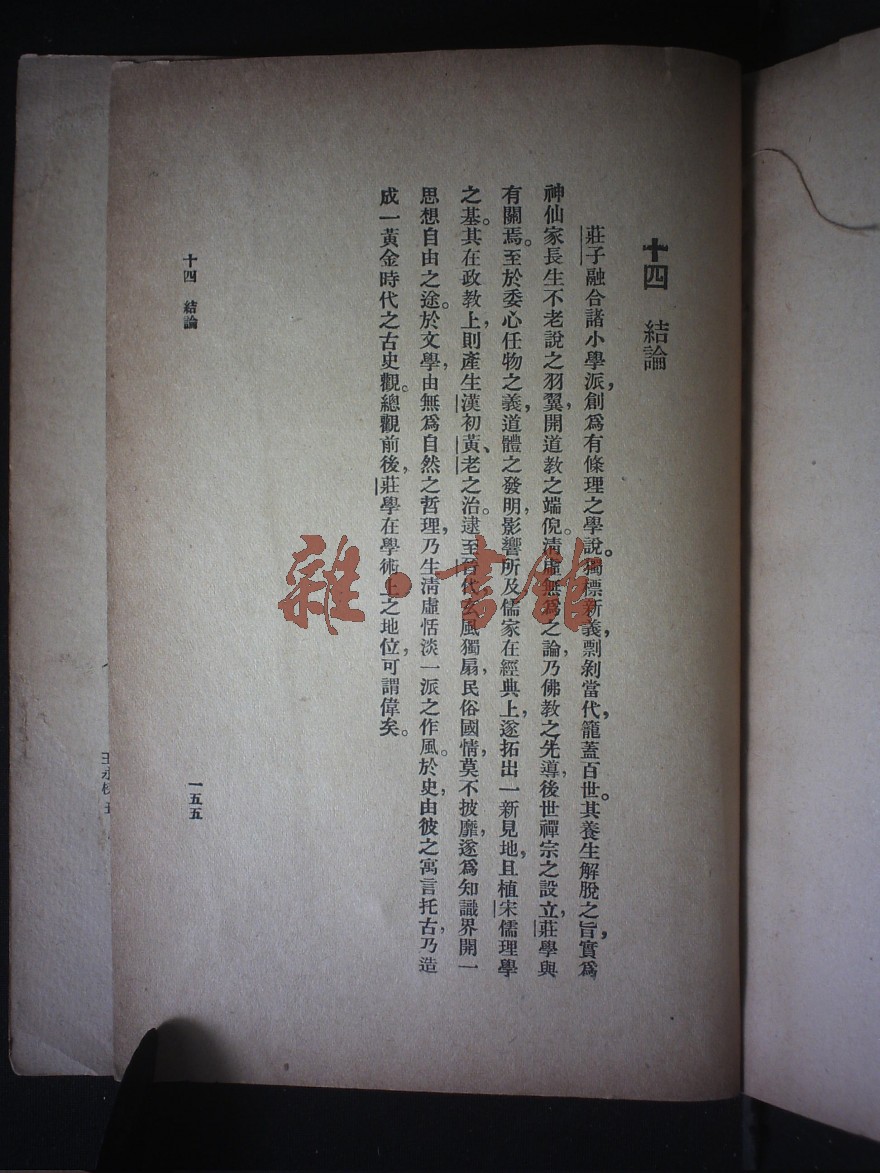 十四 結論
莊子融合諸小學派，創爲有條理之學說。獨標新義，剽剝當代，籠蓋百世。其養生解脫之旨，實爲
神仙家長生不老說之羽翼，開道教之端倪。淸虛無爲之論，乃佛教之先導，後世禪宗之設立，莊學與
有關焉。至於委心任物之義，道體之發明，影響所及，儒家在經典上，遂拓出一新見地，且植宋儒理學
之基。其在政教上，則產生漢初黃、老之治。逮至晉代玄風獨扇，民俗國情，莫不披靡，遂爲知識界開一
思想自由之途。於文學，由無爲自然之哲理，乃生淸虛恬淡一派之作風。於史，由彼之寓言托古，乃造
成一黃金時代之古史觀。總觀前後，莊學在學術上之地位，可謂偉矣。
十四 結論
一五五
雜·書館